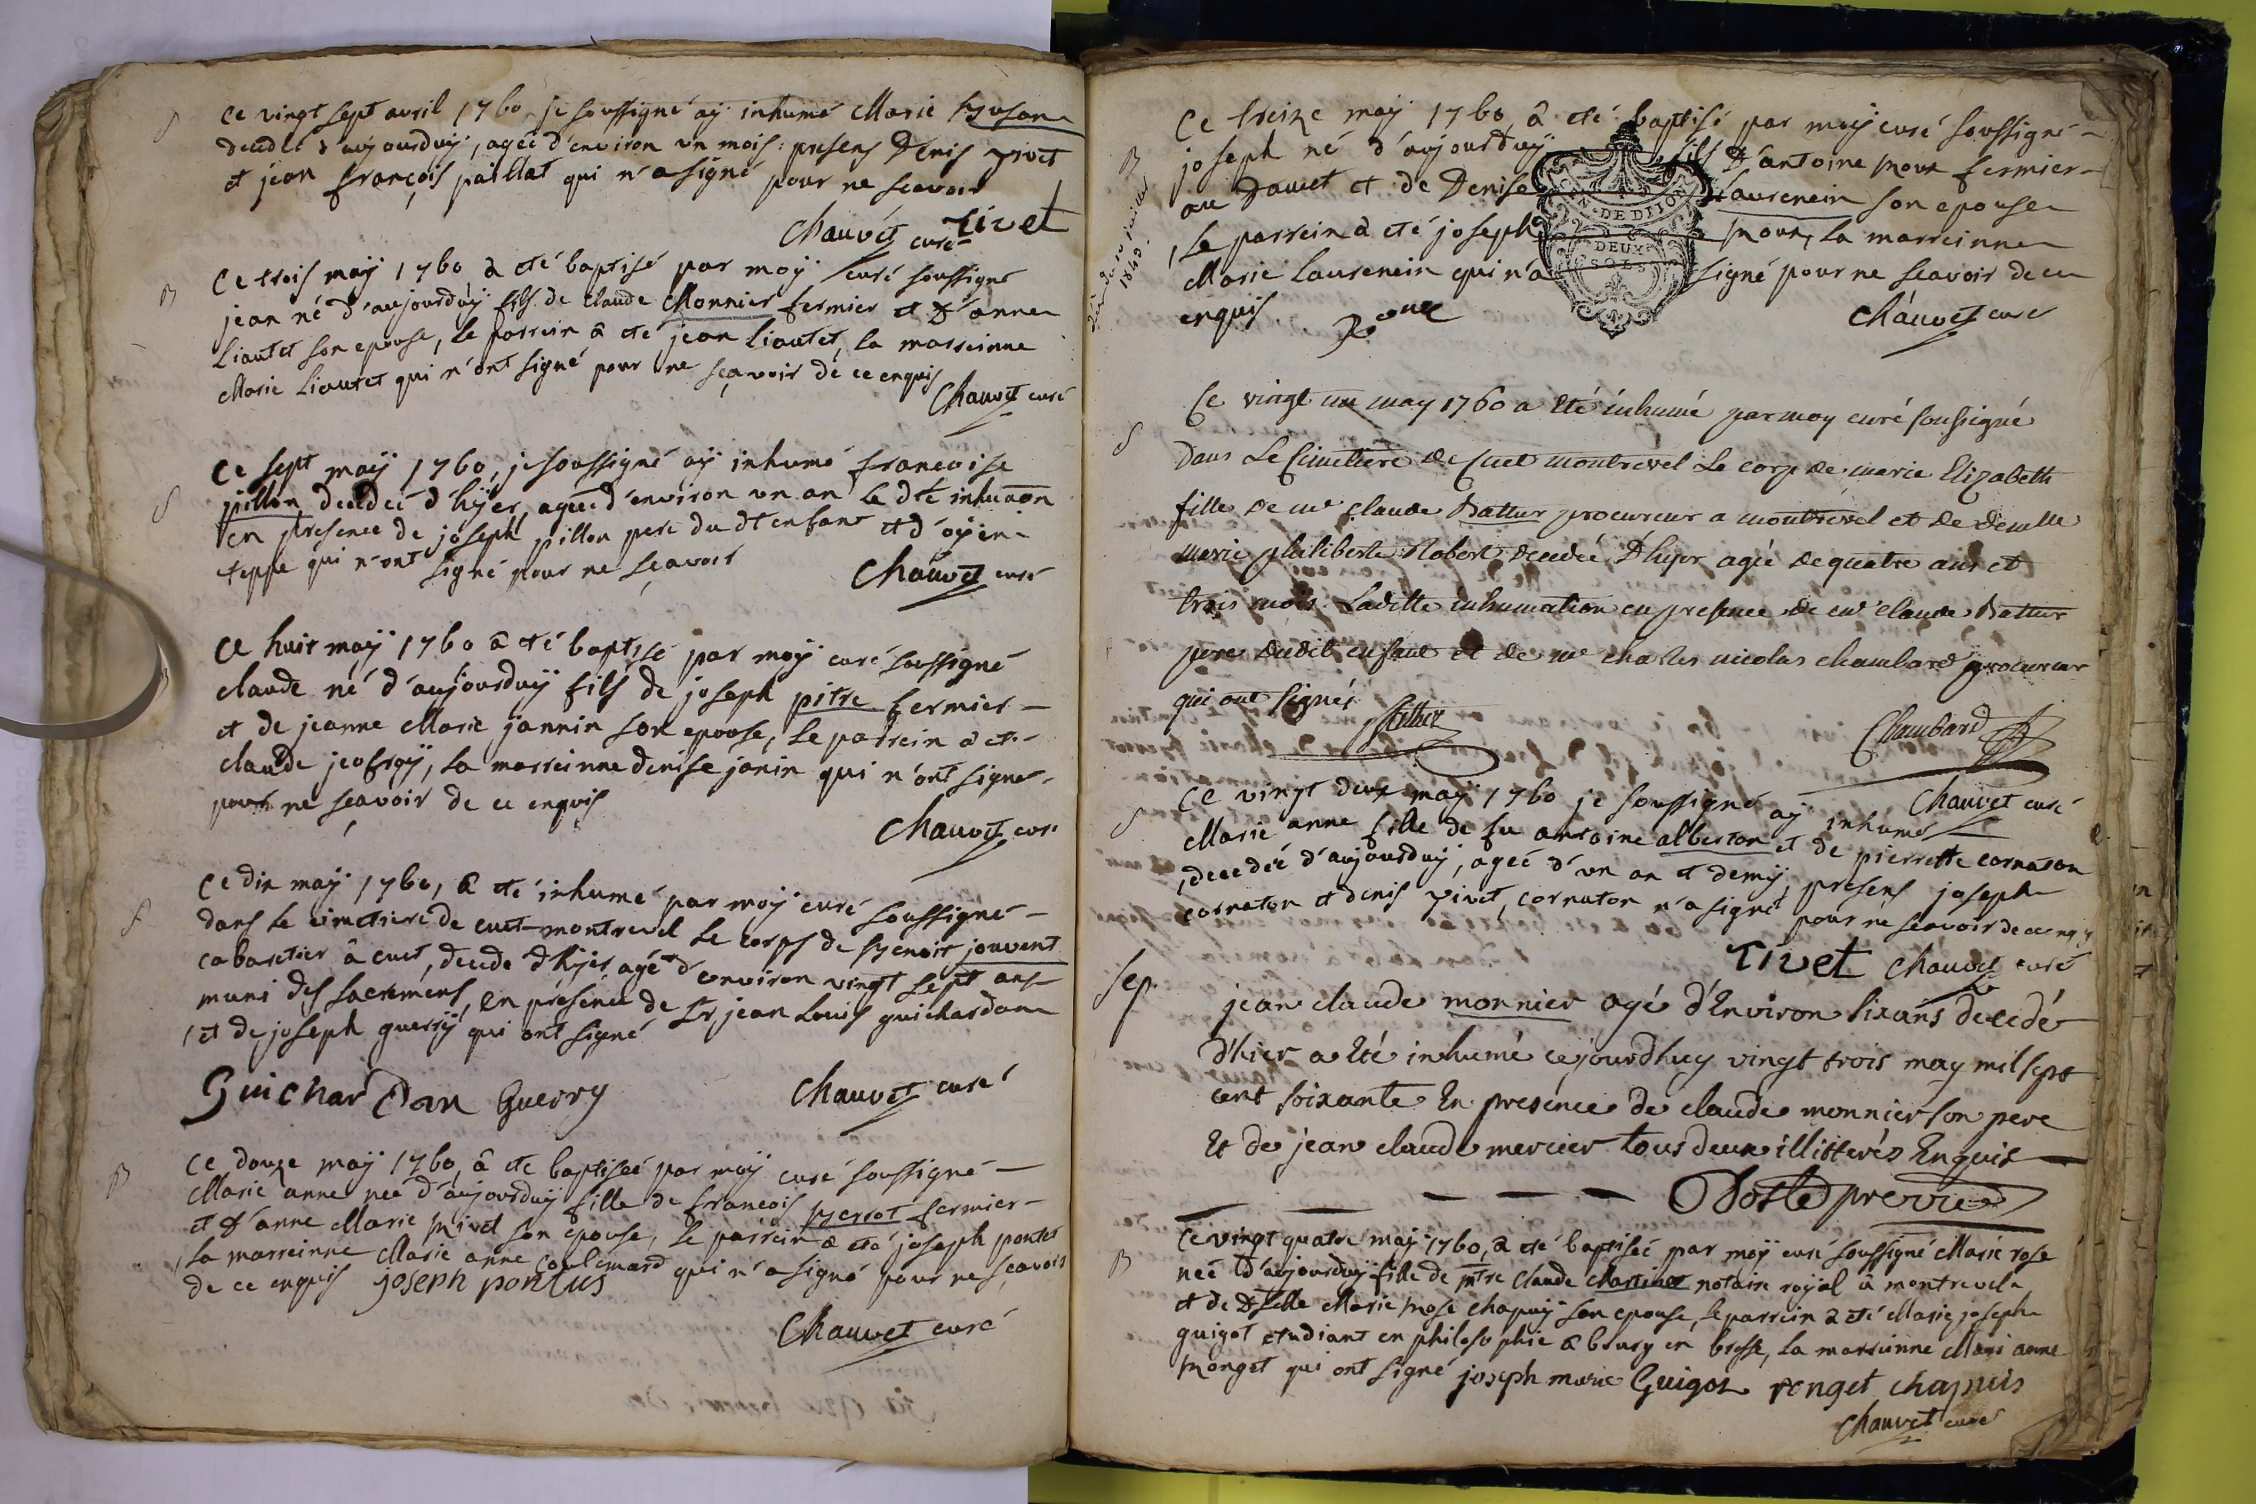 S
ce vingt sept avril 1760 je soussigné aÿ inhumé Marie
decedée d'aujourduÿ, agée d'environ un mois: presens Denis vivet
et jean françois paillat qui n'a signé pour ne scavoir
Chauvet curé vivet
B
Ce trois maÿ 1760 a eté baptisé par moÿ curé soussigné
jean né d'aujourduÿ fils de claude Monnier fermier et d'anne
Liautet son epouse, le parrein a eté jean Liautet, la marreinne
Marie Liautet qui n'ont signé pour ne sçavoir de ce enquis
Chauvet curé
S
Ce sept maÿ 1760, je soussigné aÿ inhumé francoise
pillon decedée d'hÿer, agée d'environ un an la dte
en presence de joseph pillon pere du dt enfant et d'
teppe qui n'ont signé pour ne sçavoir
Chauvet curé
Ce huit maÿ 1760 a eté baptisé par moÿ curé soussigné
claude né d'aujourduÿ fils de joseph pitre fermier
et de jeanne Marie jannin son epouse, le parrein a eté
claude jeofroÿ, la marreinne denise janin qui n'ont signer
pour ne sçavoir de ce enquis
Chauvet curé
S
Ce dix maÿ 1760, a eté inhumé par moÿ curé soussigné
dans le cimetiere de cuet-montrevel le corps de Benoit jouvent
cabaretier â cuet, decede d'hÿer agé d'environ vingt sept ans
muni des sacremens, en presence de Sr jean Louis guichardan
et de joseph guerrÿ qui ont signé
Guichardan Guerry Chauvet curé
B
Ce douze maÿ 1760, â eté baptiseé par moÿ curé soussigné
Marie anne neé d'aujourduÿ fille de francois fermier
et d'anne Marie son epouse, le parrein a eté joseph pontus
la marreinne Marie anne Coulemard qui n'a signé pour ne sçavoir
de ce enquis joseph pontus
Chauvet curé
B
Ce treize maÿ 1760 â eté baptisé par moÿ curé soussigné
joseph né d'aujourduÿ fils d'antoine fermier
au Dauet et de Denise Laurencin son epouse
le parrein a eté joseph la marreinne
Marie Laurencin qui n'a signé pour ne scavoir de ce
enquis
Chauvet curé
1840
DE DIJON
DEUX
SOLS
S
Ce vingt un may 1760 a été inhumé par moy curé soussigné
dans Le Cimetiere de Cuet montrevel Le corp de marie Elizabeth
fille de me claude procureur a montrevel et de demlle
marie philiberte Robert decedée d'hyer agée de quatre ans et
trois mois. Laditte inhumation en presence de me claude
pere dudit enfant et de me charles nicolas chambard procureur
qui ont signés
Chambard
Chauvet curé
S
Ce vingt deux maÿ 1760 je soussigné aÿ inhumé
Marie anne fille de fu antoine alberton et de pierrette cornaton
decedée d'aujourduÿ, ageé d'un an et demÿ, presens joseph
cornaton et denis vivet, cornaton n'a signé pour ne scavoir de ce enq
vivet Chauvet curé
Sep.
jean claude monnier agé d'Environ six ans decedé
d'hier a eté inhumé cejourdhuy vingt trois may mil sept
cent soixante En presence de claude monnier son pere
Et de jean claude mercier tous deux illitterés Enquis
B
Ce vingt quatre maÿ 1760, â eté baptisée par moÿ curé soussigné Marie rose
neé d'aujourduÿ fille de mtre Claude Martinet notaire roÿal â montrevel
et de dlle Marie rose chapuÿ son epouse, le parrein a eté Marie joseph
guigot etudiant en philosophie â bourg en bresse, la marreinne Marie anne
monget qui ont signé joseph marie Guigot monget chapuis
Chauvet curé